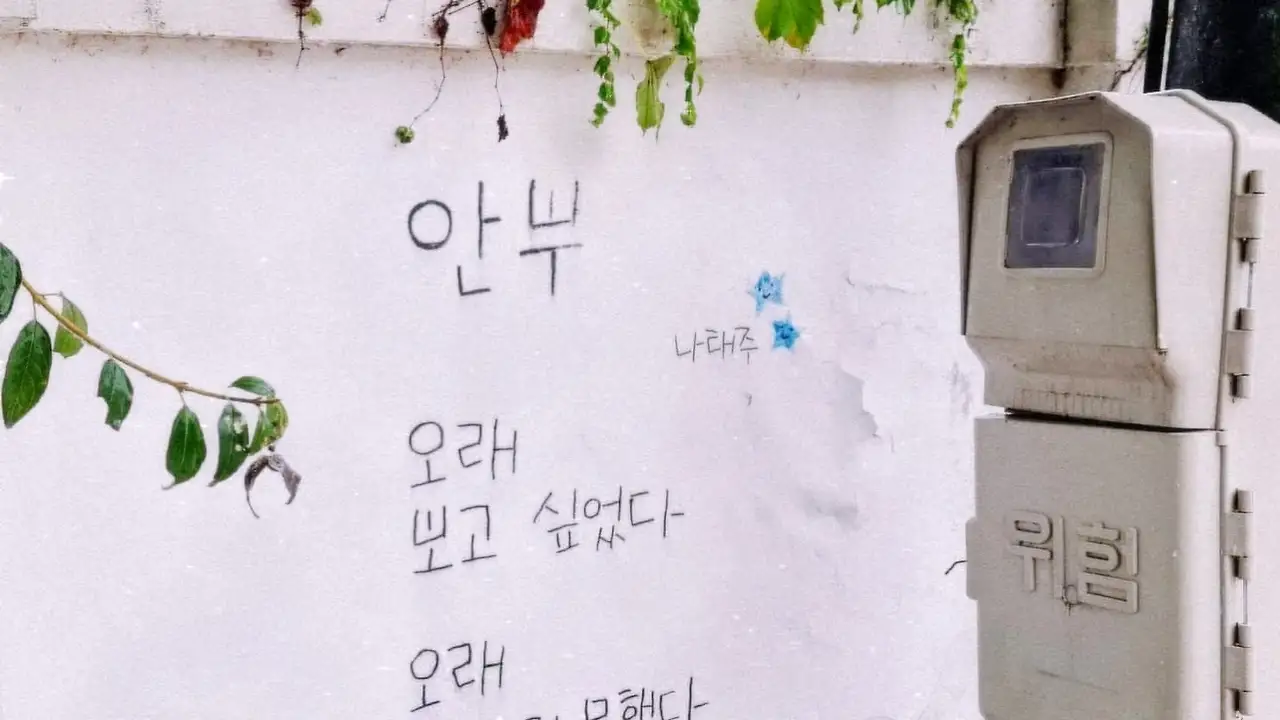 안부
나태주
오래
보고 싶었다
오래
못했다
위험